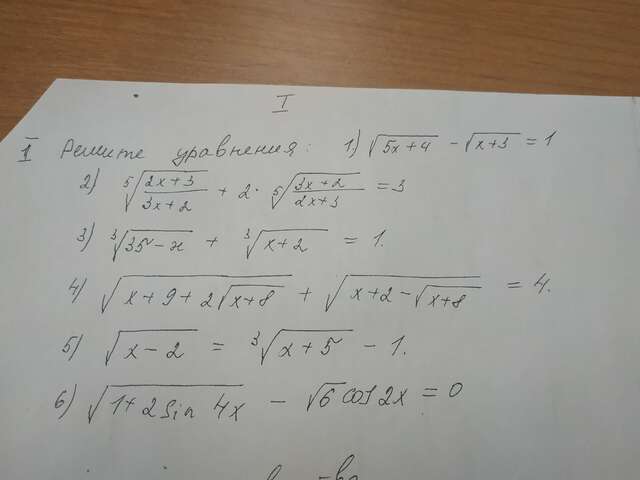 I
I Решите уравнения: 1) √(5x+4) - √(x+3) = 1
2) ⁵√((2x+3)/(3x+2)) + 2·⁵√((3x+2)/(2x+3)) = 3
3) ³√(35-x) + ³√(x+2) = 1.
4) √(x+9+2√(x+8)) + √(x+2-√(x+8)) = 4.
5) √(x-2) = ³√(x+5) - 1.
6) √(1+2 sin 4x) - √6 cos 2x = 0